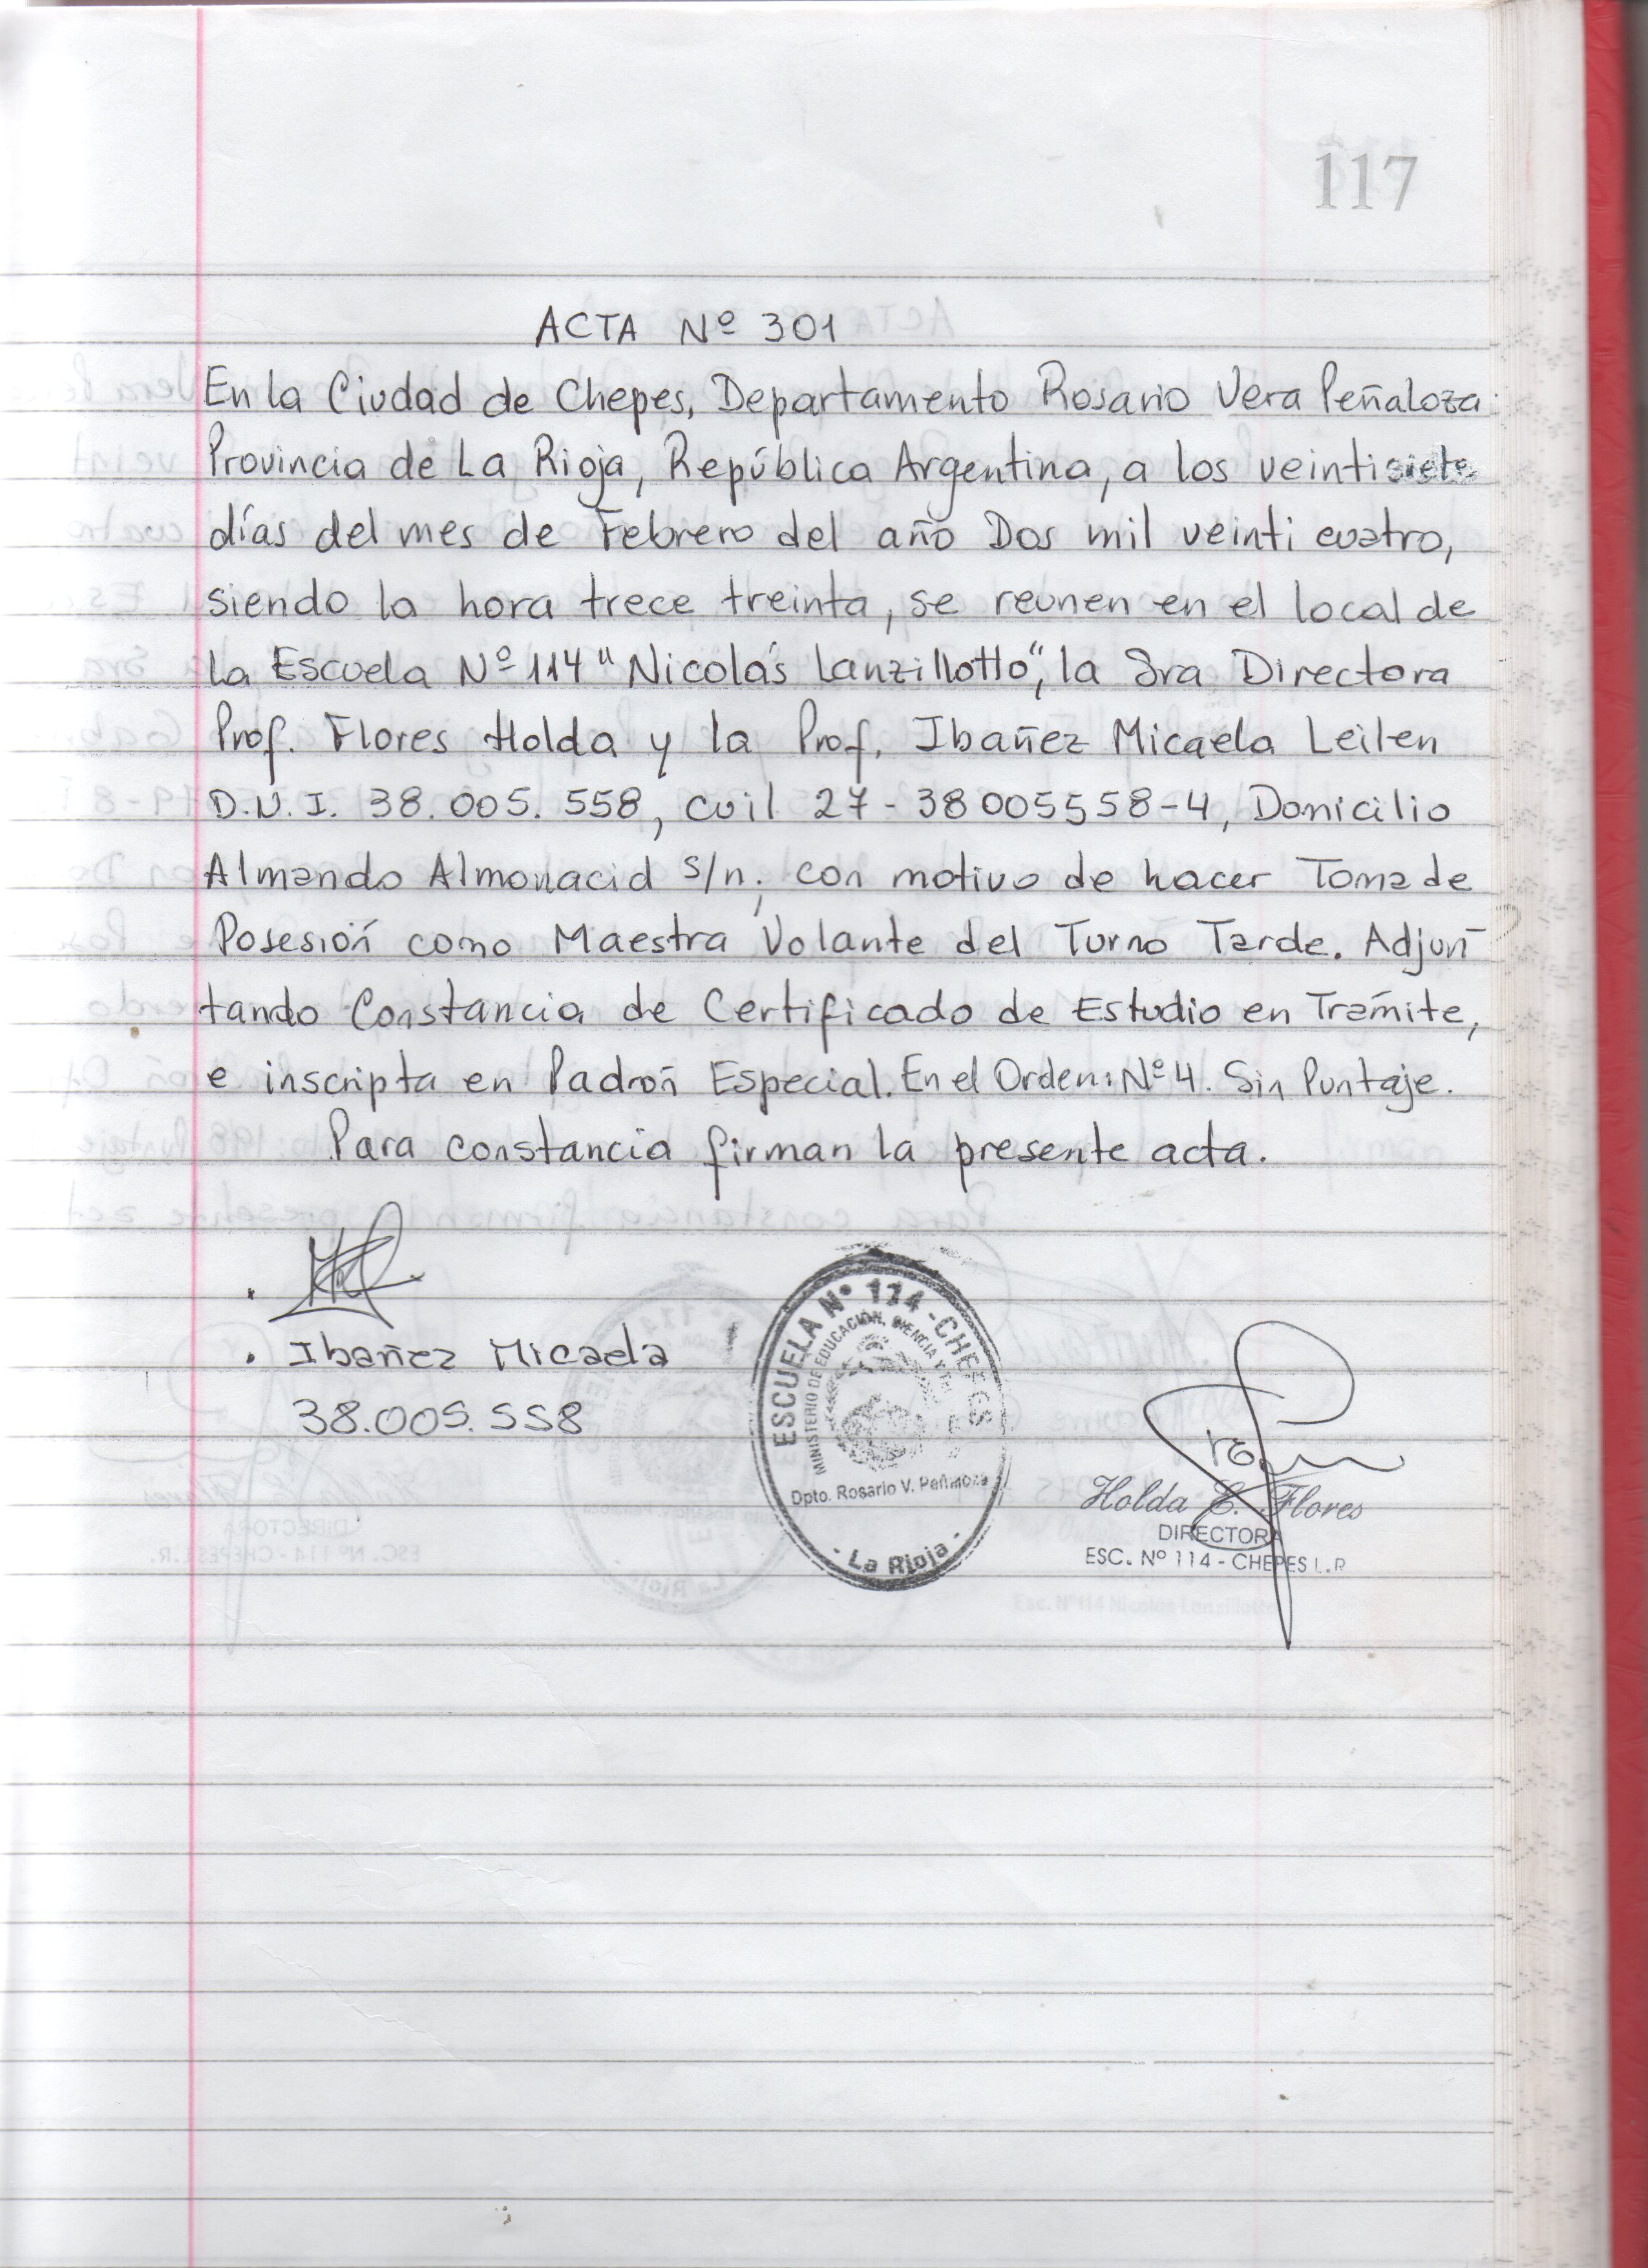 117
ACTA Nº 301
En la Ciudad de Chepes, Departamento Rosario Vera Peñaloza
Provincia de La Rioja, República Argentina, a los veintisiete
días del mes de Febrero del año Dos mil veinti cuatro,
siendo la hora trece treinta, se reunen en el local de
la Escuela Nº 114 "Nicolás Lanzillotto", la Sra Directora
Prof. Flores Holda y la Prof. Ibañez Micaela Leilen
D.N.I. 38.005.558, cuil 27-38005558-4, Domicilio
Almando Almonacid s/n, con motivo de hacer Toma de
Posesión como Maestra Volante del Turno Tarde. Adjun
tando Constancia de Certificado de Estudio en Trámite,
e inscripta en Padrón Especial. En el Orden: Nº 4. Sin Puntaje.
Para constancia firman la presente acta.
Ibañez Micaela
38.005.558
ESCUELA Nº 114 - CHEPES
MINISTERIO DE EDUCACIÓN, CIENCIA Y
Dpto. Rosario V. Peñaloza
- La Rioja -
Holda C. Flores
DIRECTORA
ESC. Nº 114 - CHEPES L.R